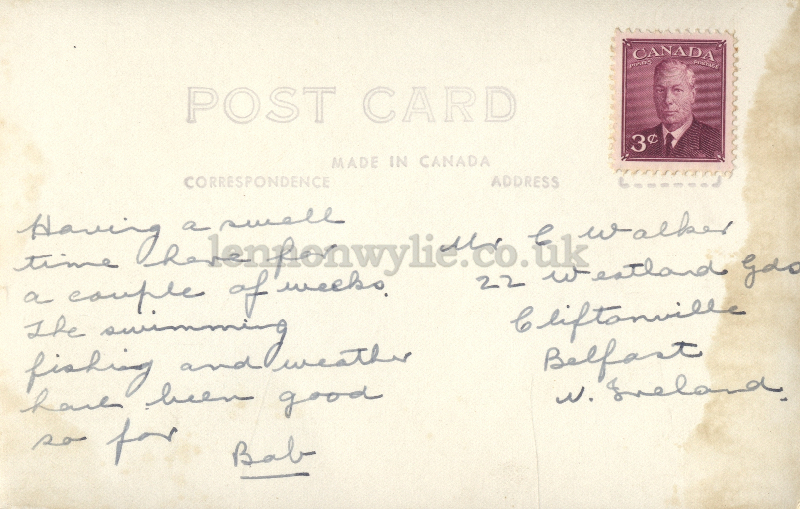 CANADA
POSTES POSTAGE
3¢
POST CARD
MADE IN CANADA
CORRESPONDENCE
ADDRESS
Having a swell
time here for
a couple of weeks.
The swimming
fishing and weather
have been good
so far
Bob
Mr C Walker
22 Westland Gds
Cliftonville
Belfast
N. Ireland.
lennonwylie.co.uk